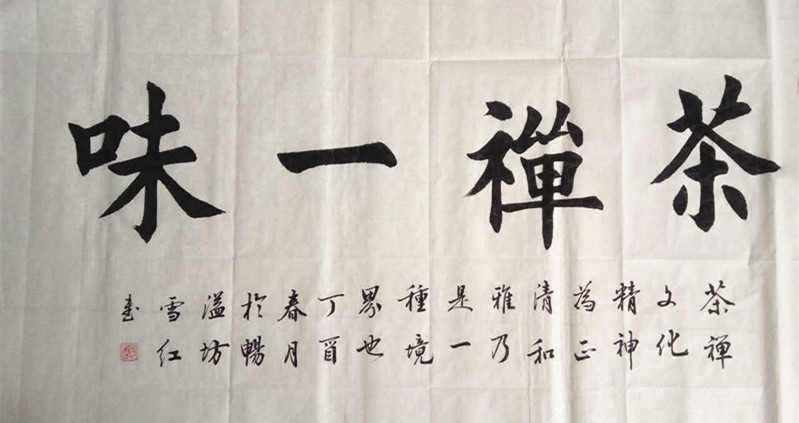 茶禪一味
茶禅
文化
精神
為正
清和
雅乃
是一
種境
界也
丁酉
春月
於暢
溢坊
雪红
书